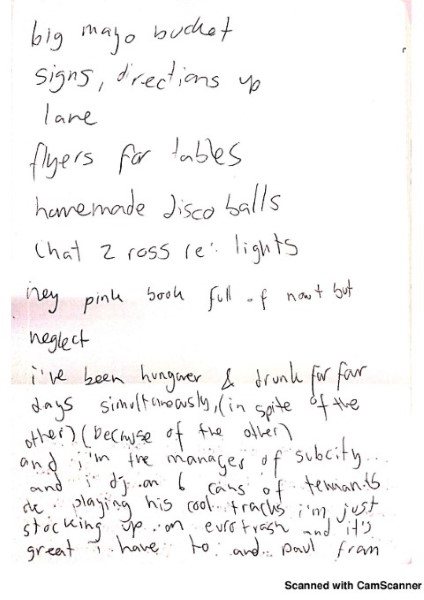 big mayo bucket
signs, directions up
lane
flyers for tables
homemade disco balls
Chat 2 ross re: lights
hey pink book full of nowt but
neglect
i've been hungover & drunk for four
days simultaneously, (in spite of the
other) (because of the other)
and i'm the manager of subcity
and i dj on 6 cans of tennants
playing his cool tracks i'm just
stocking up on eurotrash and it's
great i have to and paul fran
Scanned with CamScanner